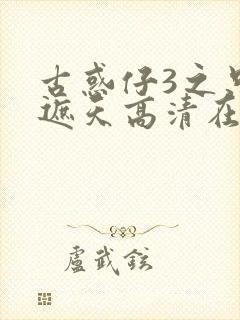 古惑仔3之
遮天高清在
盧武鉉